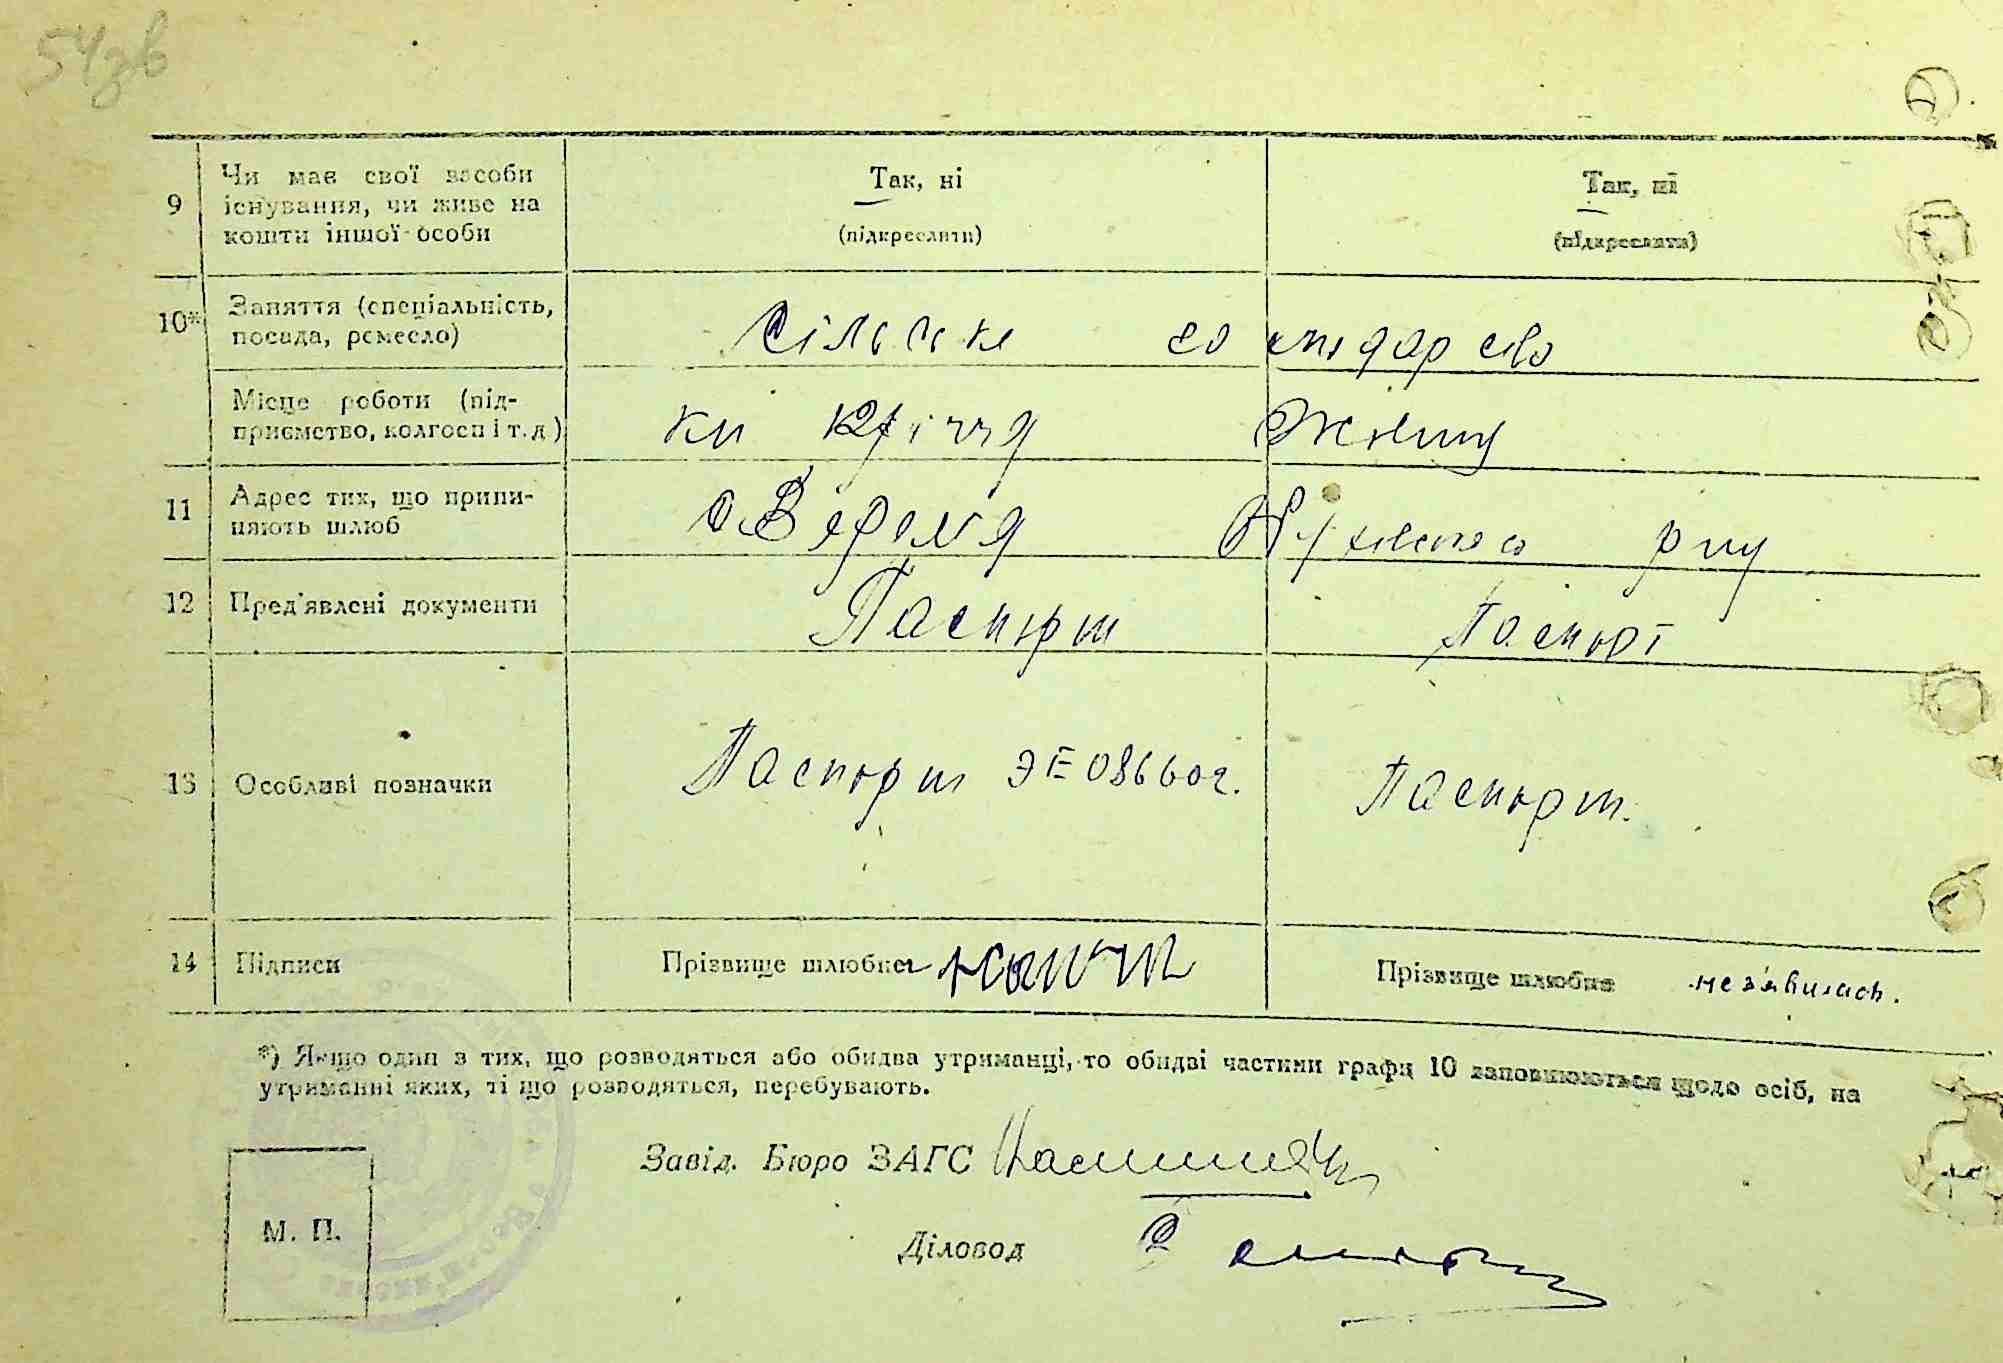 54зв
9 Чи має свої засоби Так, ні Так, ні
існування, чи живе на
кошти іншої особи (підкреслити) (підкреслити)
10* Заняття (спеціальність,
посада, ремесло) Сільське господарство
Місце роботи (під-
приємство, колгосп і т.д)
11 Адрес тих, що припи-
няють шлюб р ну
12 Пред'явлені документи Паспорт Паспорт
13 Особливі позначки Паспорт ЭЕ 086602. Паспорт.
14 Підписи Прізвище шлюбне Прізвище шлюбне не з'явилась.
*) Якщо один з тих, що розводяться або обидва утриманці, то обидві частини графи 10 заповнюються щодо осіб, на
утриманні яких, ті що розводяться, перебувають.
Завід. Бюро ЗАГС
Діловод
М. П.